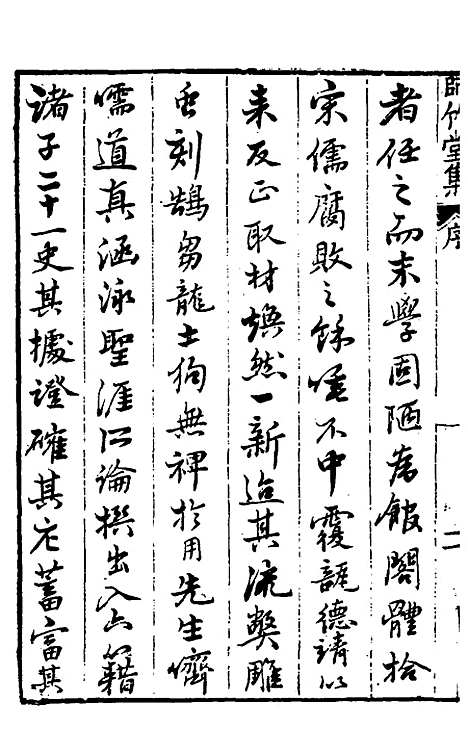 師竹堂集 序
二
者任之而末學固陋為館閣體拾
宋儒腐敗之餘唾不中覆瓿德靖以
來反正取材煥然一新迨其流弊雕
虫刻鵠芻龍土狗無裨於用先生儕
儒道真涵泳聖涯所論撰出入六籍
諸子二十一史其據證確其宏蓄富其